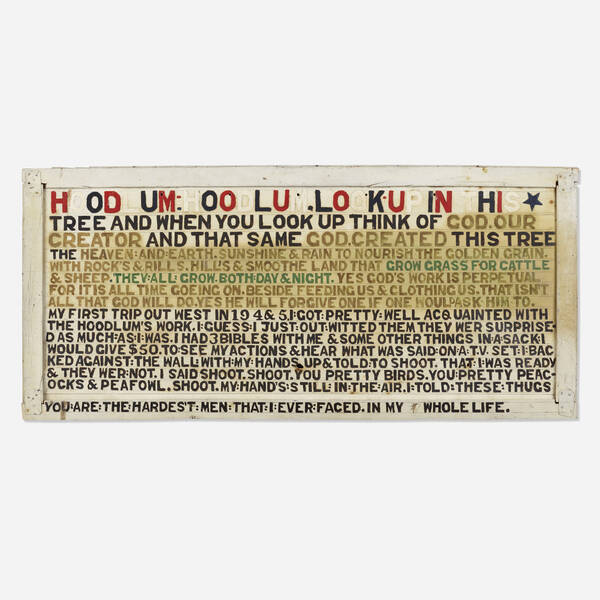 HOODLUM:HOODLUM.LOOK:UP IN THIS
TREE AND WHEN YOU LOOK UP THINK OF GOD.OUR
CREATOR AND THAT SAME GOD.CREATED THIS TREE
THE HEAVEN:AND:EARTH. SUNSHINE & RAIN TO NOURISH THE GOLDEN GRAIN.
WITH ROCK'S & RILLS. HILL'S & SMOOTHE LAND THAT GROW GRASS FOR CATTLE
& SHEEP. THEY:ALL: GROW:BOTH:DAY & NIGHT. YES GOD'S WORK IS PERPETUAL
& SHIT IS ALL TIME GOEING ON. BESIDE FEEDING US & CLOTHING:US.THAT ISN'T
ALL THAT GOD WILL DO.YES HE WILL FORGIVE ONE IF ONE WOULD ASK HIM TO.
MY FIRST TRIP OUT WEST IN 1945,I:GOT:PRETTY:WELL ACQUAINTED WITH
THE HOODLUM'S WORK. I:GUESS:I JUST:OUT:WITTED THEM THEY WER SURPRISE-
D AS MUCH:AS:I WAS.I HAD 3 BIBLES WITH ME & SOME OTHER THINGS IN A:SACK I
WOULD GIVE $50.TO:SEE MY ACTIONS & HEAR WHAT WAS SAID:ON:A:T.V. SET:I:BAC
KED AGAINST:THE WALL WITH:MY:HANDS,UP & TOLD TO SHOOT. THAT I WAS READY
& THEY WER:NOT. I SAID SHOOT.SHOOT.YOU PRETTY BIRDS.YOU:PRETTY PEAC-
OCKS & PEAFOWL. SHOOT. MY HAND'S:STILL: IN:THE AIR.I:TOLD:THESE:THUGS
YOU:ARE:THE:HARDES'T:MEN:THAT:I:EVER:FACED.IN MY WHOLE LIFE.